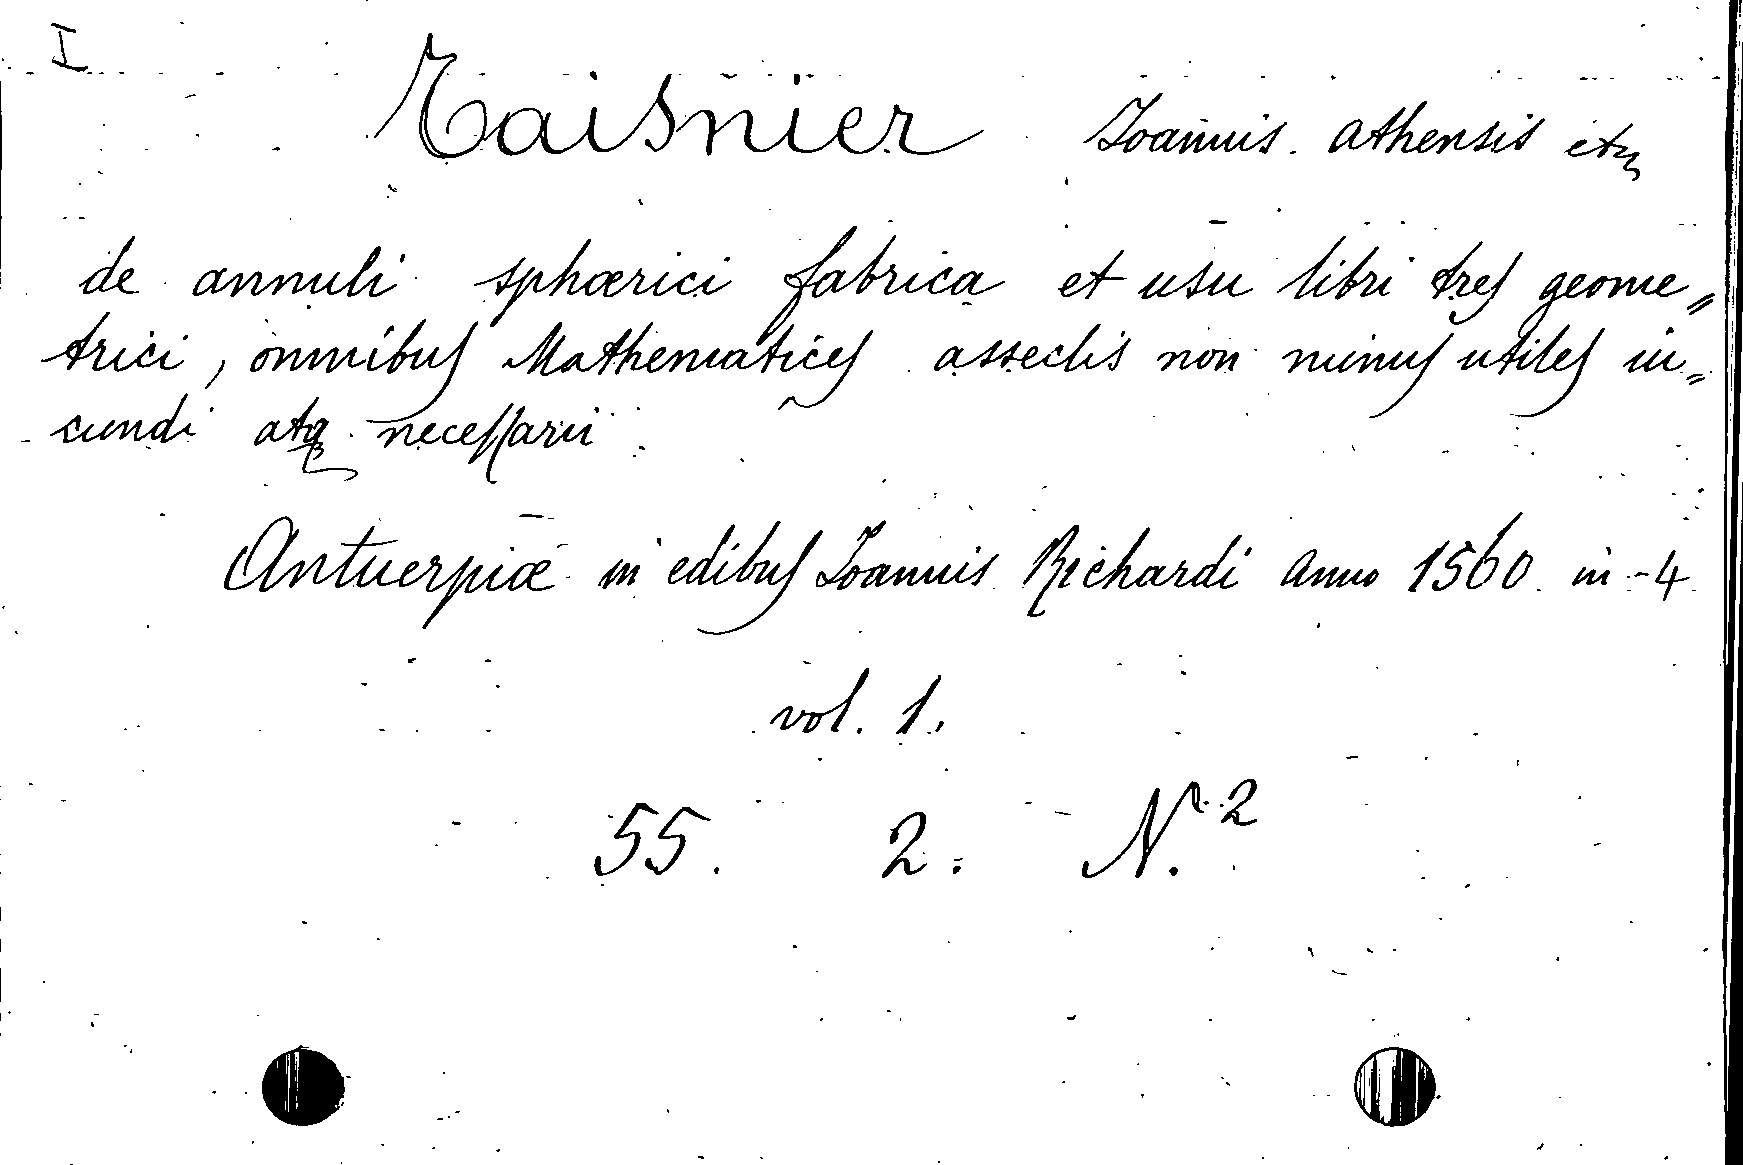 I
Taisnier Joannis athensis etc
de annuli sphærici fabrica et usu libri tres geome„
trici, omnibus Mathematices asseclis non minus utiles iu„
cundi atq necessarii
Antuerpiæ in edibus Joannis Richardi anno 1560 in-4
vol. 1.
55. 2. N. 2